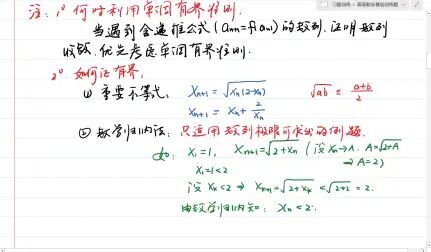 习题训练 - 高等数学基础训练题
注: 1° 何时利用单调有界准则.
当遇到含递推公式(aₙ₊₁=f(aₙ))的数列, 证明数列
收敛, 优先考虑单调有界准则.
2° 如何证有界:
① 重要不等式: Xₙ₊₁ = √Xₙ(3-Xₙ) √ab ≤ (a+b)/2
Xₙ₊₁ = Xₙ + 2/Xₙ
② 数学归纳法: 只适用数列极限可求出的例题.
如: X₁=1, Xₙ₊₁=√2+Xₙ (设 Xₙ→A. A=√2+A
⇒ A=2)
X₁=1<2
设 Xₖ<2 ⇒ Xₖ₊₁=√2+Xₖ <√2+2 = 2.
由数学归纳法知: Xₙ<2.